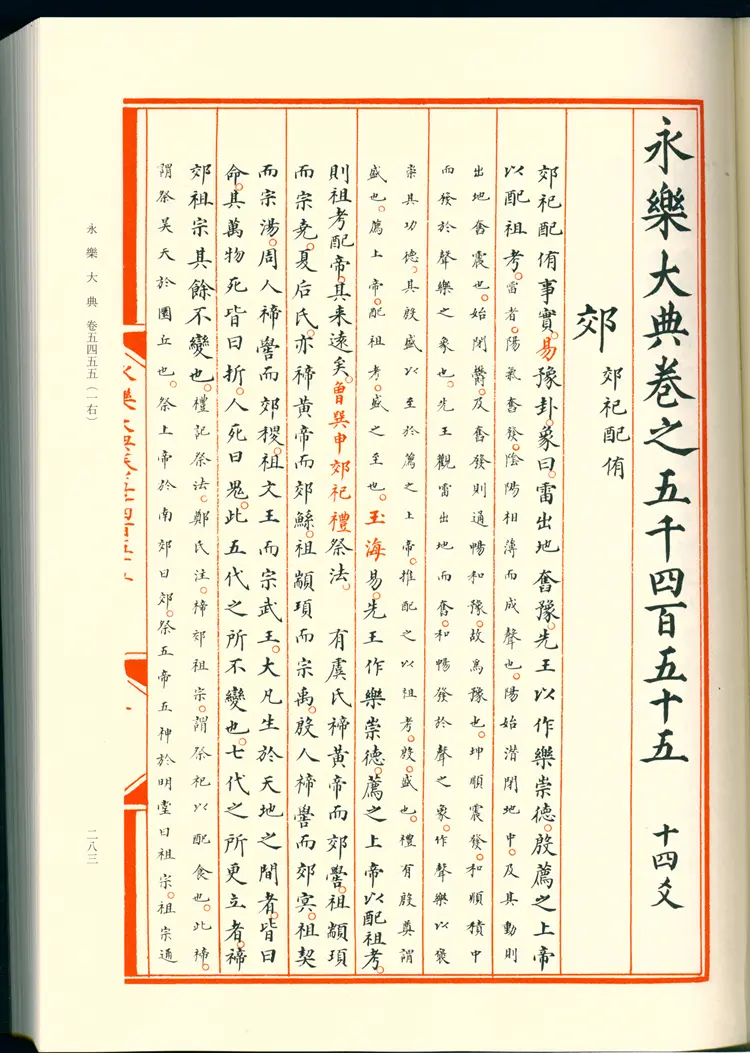 永樂大典卷之五千四百五十五 十四爻
郊 郊祀配侑
郊祀配侑事實。易豫卦。象曰。雷出地奮豫。先王以作樂崇德。殷薦之上帝
以配祖考。雷者。陽氣奮發。陰陽相薄而成聲也。陽始潜閉地中。及其動則
出地奮震也。始閉鬱。及奮發則通暢和豫。故為豫也。坤順震發。和順積中
而發於聲樂之象也。先王觀雷出地而奮。和暢發於聲之象。作聲樂以褒
崇其功德。其殷盛以至於薦之上帝。推配之以祖考。殷。盛也。禮有殷奠謂
盛也。薦上帝。配祖考。盛之至也。玉海易。先王作樂崇德。薦之上帝以配祖考。
則祖考配帝。其来遠矣。曾巽申郊祀禮祭法。 有虞氏禘黄帝而郊嚳。祖顓頊
而宗堯。夏后氏。亦禘黄帝而郊鯀。祖顓頊而宗禹。殷人禘嚳而郊冥。祖契
而宗湯。周人禘嚳而郊稷。祖文王而宗武王。大凡生於天地之間者。皆曰
命。其萬物死皆曰折。人死曰鬼。此五代之所不變也。七代之所更立者。禘
郊祖宗其餘不變也。禮記祭法。鄭氏注。禘郊祖宗。謂祭祀以配食也。此禘。
謂祭昊天於圜丘也。祭上帝於南郊曰郊。祭五帝五神於明堂曰祖宗。祖宗通
永樂大典 卷五四五五(一右)
二八三